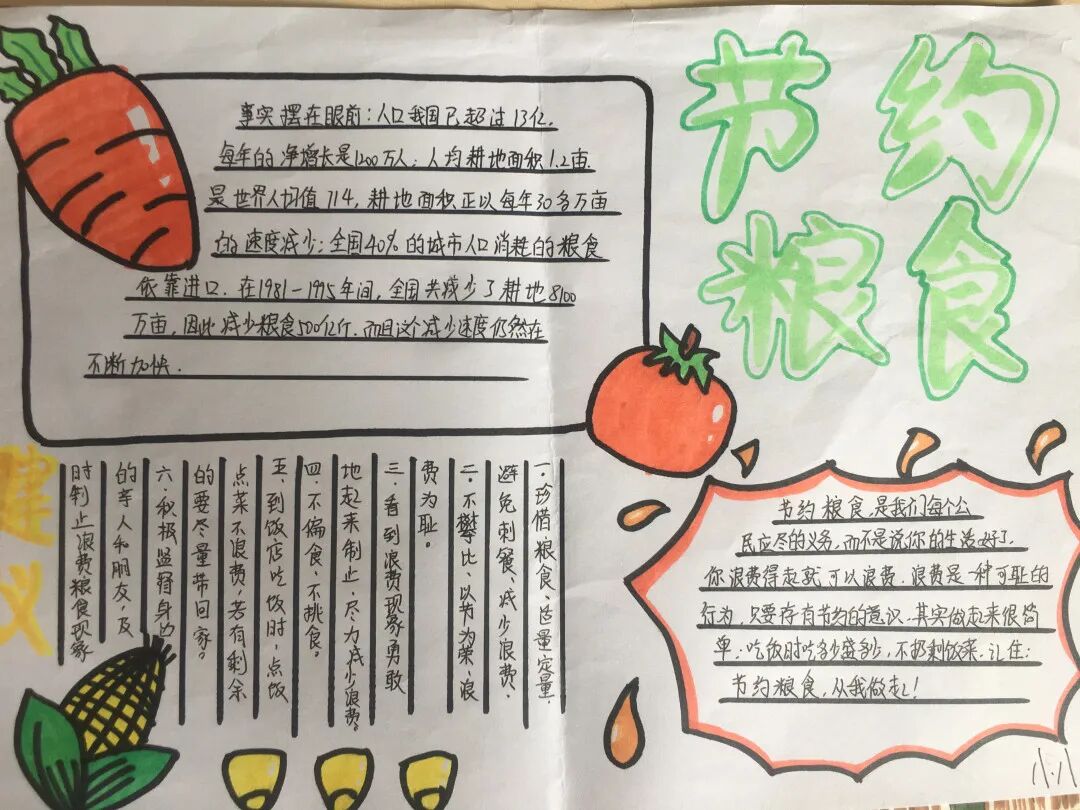 节约
粮食
事实摆在眼前：人口我国已超过13亿.
每年的净增长是1200万人；人均耕地面积1.2亩.
是世界人均值114，耕地面积正以每年30多万亩
的速度减少；全国40%的城市人口消耗的粮食
依靠进口.在1981—1995年间，全国共减少了耕地8100
万亩，因此减少粮食500亿斤.而且这个减少速度仍然在
不断加快.
建议
一.珍惜粮食、适量定量，
避免剩餐、减少浪费.
二.不攀比、以节为荣、浪
费为耻。
三、看到浪费现象勇敢
地起来制止，尽力减少浪费。
四、不偏食、不挑食。
五、到饭店吃饭时，点饭
点菜不浪费，若有剩余
的要尽量带回家。
六、积极监督身边
的亲人和朋友，及
时制止浪费粮食现象
节约粮食，是我们每个公
民应尽的义务，而不是说你的生活好了.
你浪费得起就可以浪费.浪费是一种可耻的
行为.只要存有节约的意识.其实做起来很简
单：吃饭时吃多少盛多少，不扔剩饭菜.让住：
节约粮食，从我做起！